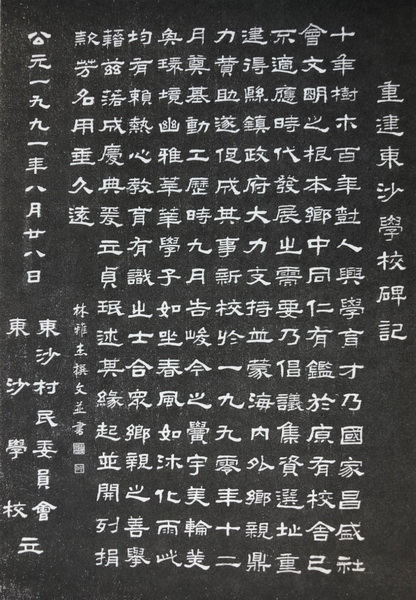 重建東沙學校碑記
十年樹木百年尌人興學育才乃國家昌盛社
會文明之根本鄉中同仁有鑑於原有校舍已
不適應時代發展之需要乃倡議集資選址重
建得縣鎮政府大力支持並蒙海內外鄉親鼎
力贊助遂促成其事新校於一九九零年十二
月奠基動工歷時九月告峻今之黌宇美輪美
奐環境幽雅莘莘學子如坐春風如沐化雨此
均有賴熱心教育有識之士合眾鄉親之善舉
藉茲落成慶典爰立貞珉述其緣起並開列捐
款芳名用垂久遠
林雅杰撰文並書
公元一九九一年八月廿八日
東沙村民委員會
東沙學校立